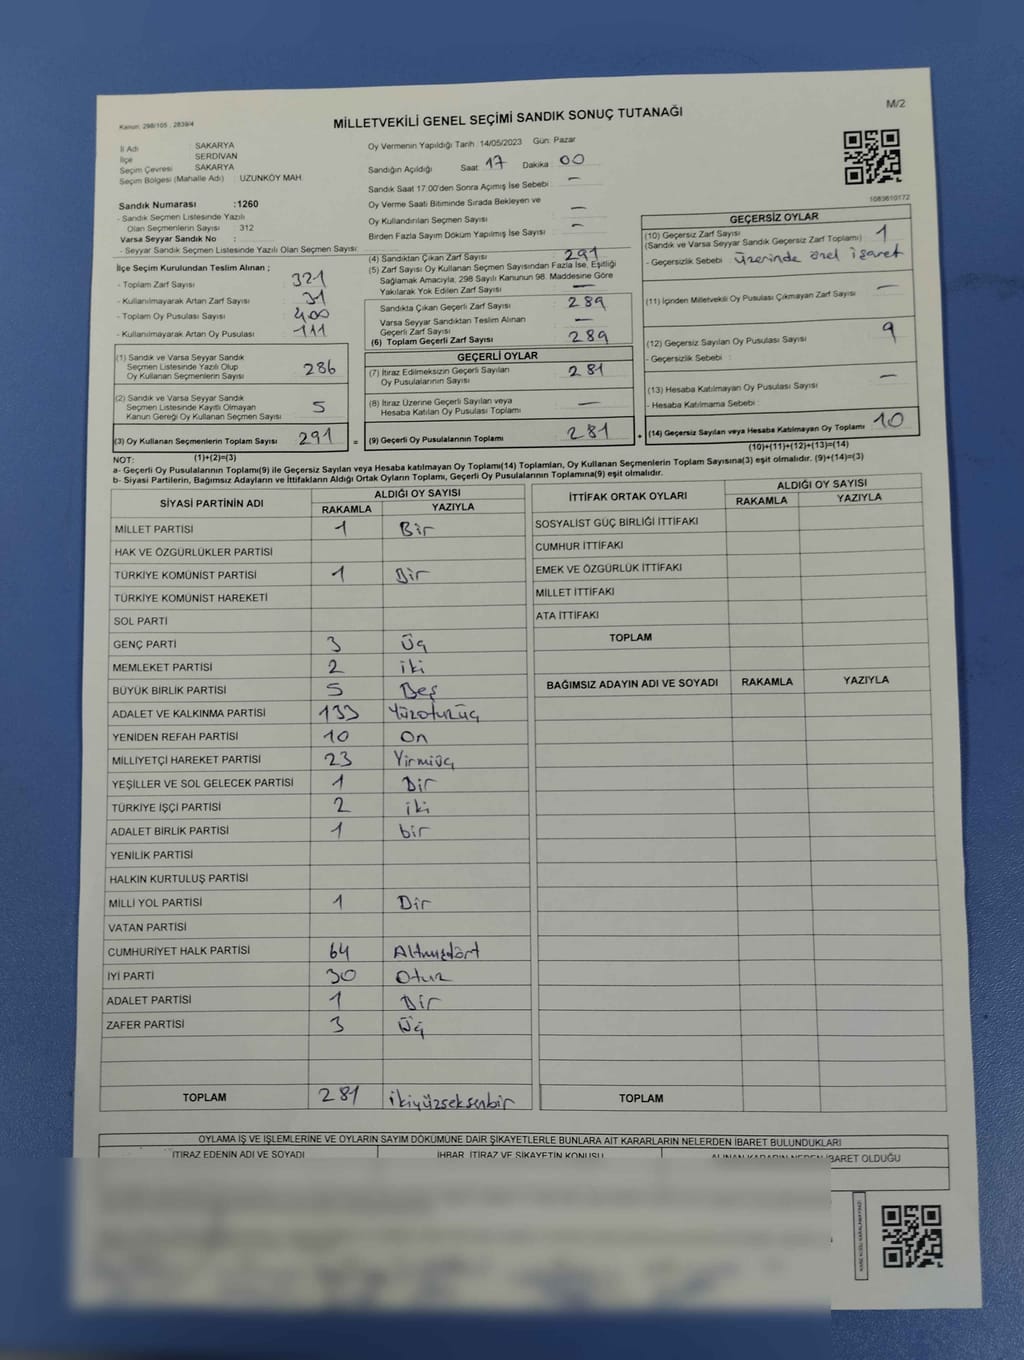 Kanun: 298/105 , 2839/4
M/2
MİLLETVEKİLİ GENEL SEÇİMİ SANDIK SONUÇ TUTANAĞI
İl Adı : SAKARYA
İlçe SERDİVAN
Seçim Çevresi SAKARYA
Seçim Bölgesi (Mahalle Adı) : UZUNKÖY MAH.
Sandık Numarası :1260
- Sandık Seçmen Listesinde Yazılı
Olan Seçmenlerin Sayısı : 312
Varsa Seyyar Sandık No :
- Seyyar Sandık Seçmen Listesinde Yazılı Olan Seçmen Sayısı:
İlçe Seçim Kurulundan Teslim Alınan ;
- Toplam Zarf Sayısı : 321
- Kullanılmayarak Artan Zarf Sayısı : 31
- Toplam Oy Pusulası Sayısı : 400
- Kullanılmayarak Artan Oy Pusulası : 111
(1) Sandık ve Varsa Seyyar Sandık
Seçmen Listesinde Yazılı Olup
Oy Kullanan Seçmenlerin Sayısı : 286
(2) Sandık ve Varsa Seyyar Sandık
Seçmen Listesinde Kayıtlı Olmayan
Kanun Gereği Oy Kullanan Seçmen Sayısı : 5
(3) Oy Kullanan Seçmenlerin Toplam Sayısı : 291 =
(1)+(2)=(3)
Oy Vermenin Yapıldığı Tarih :14/05/2023 Gün: Pazar
Sandığın Açıldığı Saat: 17 Dakika : 00
Sandık Saat 17:00'den Sonra Açımış İse Sebebi : —
Oy Verme Saati Bitiminde Sırada Bekleyen ve
Oy Kullandırılan Seçmen Sayısı : —
Birden Fazla Sayım Döküm Yapılmış İse Sayısı : —
(4) Sandıktan Çıkan Zarf Sayısı : 291
(5) Zarf Sayısı Oy Kullanan Seçmen Sayısından Fazla İse, Eşitliği
Sağlamak Amacıyla; 298 Sayılı Kanunun 98. Maddesine Göre
Yakılarak Yok Edilen Zarf Sayısı : —
Sandıkta Çıkan Geçerli Zarf Sayısı : 289
Varsa Seyyar Sandıktan Teslim Alınan
Geçerli Zarf Sayısı : —
(6) Toplam Geçerli Zarf Sayısı : 289
GEÇERLİ OYLAR
(7) İtiraz Edilmeksizin Geçerli Sayılan
Oy Pusulalarının Sayısı : 281
(8) İtiraz Üzerine Geçerli Sayılan veya
Hesaba Katılan Oy Pusulası Toplamı : —
(9) Geçerli Oy Pusulalarının Toplamı : 281 +
1083610172
GEÇERSİZ OYLAR
(10) Geçersiz Zarf Sayısı : 1
(Sandık ve Varsa Seyyar Sandık Geçersiz Zarf Toplamı)
- Geçersizlik Sebebi : üzerinde özel işaret
(11) İçinden Milletvekili Oy Pusulası Çıkmayan Zarf Sayısı : —
(12) Geçersiz Sayılan Oy Pusulası Sayısı : 9
- Geçersizlik Sebebi :
(13) Hesaba Katılmayan Oy Pusulası Sayısı : —
- Hesaba Katılmama Sebebi :
(14) Geçersiz Sayılan veya Hesaba Katılmayan Oy Toplamı : 10
(10)+(11)+(12)+(13)=(14)
NOT:
a- Geçerli Oy Pusulalarının Toplamı(9) ile Geçersiz Sayılan veya Hesaba katılmayan Oy Toplamı(14) Toplamları, Oy Kullanan Seçmenlerin Toplam Sayısına(3) eşit olmalıdır. (9)+(14)=(3)
b- Siyasi Partilerin, Bağımsız Adayların ve İttifakların Aldığı Ortak Oyların Toplamı, Geçerli Oy Pusulalarının Toplamına(9) eşit olmalıdır.
SİYASİ PARTİNİN ADI ALDIĞI OY SAYISI
RAKAMLA YAZIYLA
MİLLET PARTİSİ 1 Bir
HAK VE ÖZGÜRLÜKLER PARTİSİ
TÜRKİYE KOMÜNİST PARTİSİ 1 Bir
TÜRKİYE KOMÜNİST HAREKETİ
SOL PARTİ
GENÇ PARTİ 3 Üç
MEMLEKET PARTİSİ 2 iki
BÜYÜK BİRLİK PARTİSİ 5 Beş
ADALET VE KALKINMA PARTİSİ 133 Yüzotuzüç
YENİDEN REFAH PARTİSİ 10 On
MİLLİYETÇİ HAREKET PARTİSİ 23 Yirmiüç
YEŞİLLER VE SOL GELECEK PARTİSİ 1 Bir
TÜRKİYE İŞÇİ PARTİSİ 2 iki
ADALET BİRLİK PARTİSİ 1 bir
YENİLİK PARTİSİ
HALKIN KURTULUŞ PARTİSİ
MİLLİ YOL PARTİSİ 1 Bir
VATAN PARTİSİ
CUMHURİYET HALK PARTİSİ 64 Altmışdört
İYİ PARTİ 30 Otuz
ADALET PARTİSİ 1 Bir
ZAFER PARTİSİ 3 Üç
TOPLAM 281 ikiyüzseksenbir
İTTİFAK ORTAK OYLARI ALDIĞI OY SAYISI
RAKAMLA YAZIYLA
SOSYALİST GÜÇ BİRLİĞİ İTTİFAKI
CUMHUR İTTİFAKI
EMEK VE ÖZGÜRLÜK İTTİFAKI
MİLLET İTTİFAKI
ATA İTTİFAKI
TOPLAM
BAĞIMSIZ ADAYIN ADI VE SOYADI RAKAMLA YAZIYLA
TOPLAM
OYLAMA İŞ VE İŞLEMLERİNE VE OYLARIN SAYIM DÖKÜMÜNE DAİR ŞİKAYETLERLE BUNLARA AİT KARARLARIN NELERDEN İBARET BULUNDUKLARI
İTİRAZ EDENİN ADI VE SOYADI İHBAR, İTİRAZ VE ŞİKAYETİN KONUSU ALINAN KARARIN NEDEN İBARET OLDUĞU